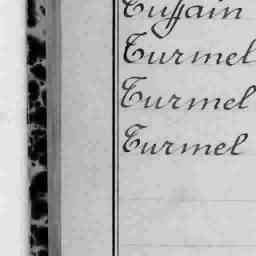 Tuffain
Turmel
Turmel
Turmel